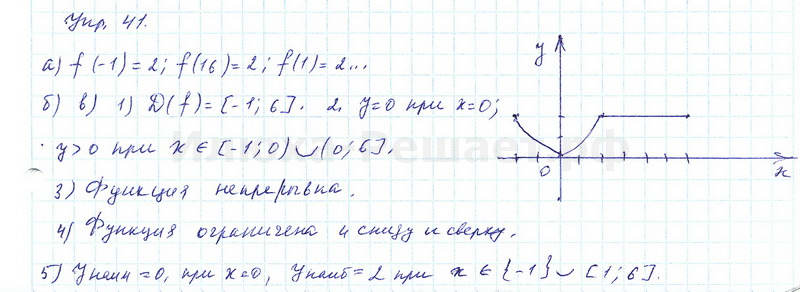 Упр. 41.
а) f(-1)=2; f(16)=2; f(1)=2...
б) в) 1) D(f)=[-1; 6]. 2. y=0 при x=0;
y>0 при x∈[-1; 0)∪(0; 6].
3) Функция непрерывна.
4) Функция ограничена и снизу и сверху.
5) yнаим=0, при x=0, yнаиб=2 при x∈{-1}∪[1; 6].
y
0
x